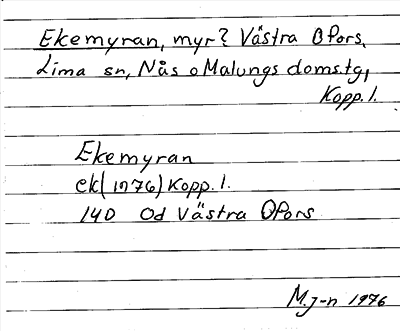 Ekemyran, myr? Västra Ofors,
Lima sn, Nås o Malungs doms.tg,
Kopp. l.
Ekemyran
ek (1976) Kopp. l.
14D Od Västra Ofors
M.J-n 1976